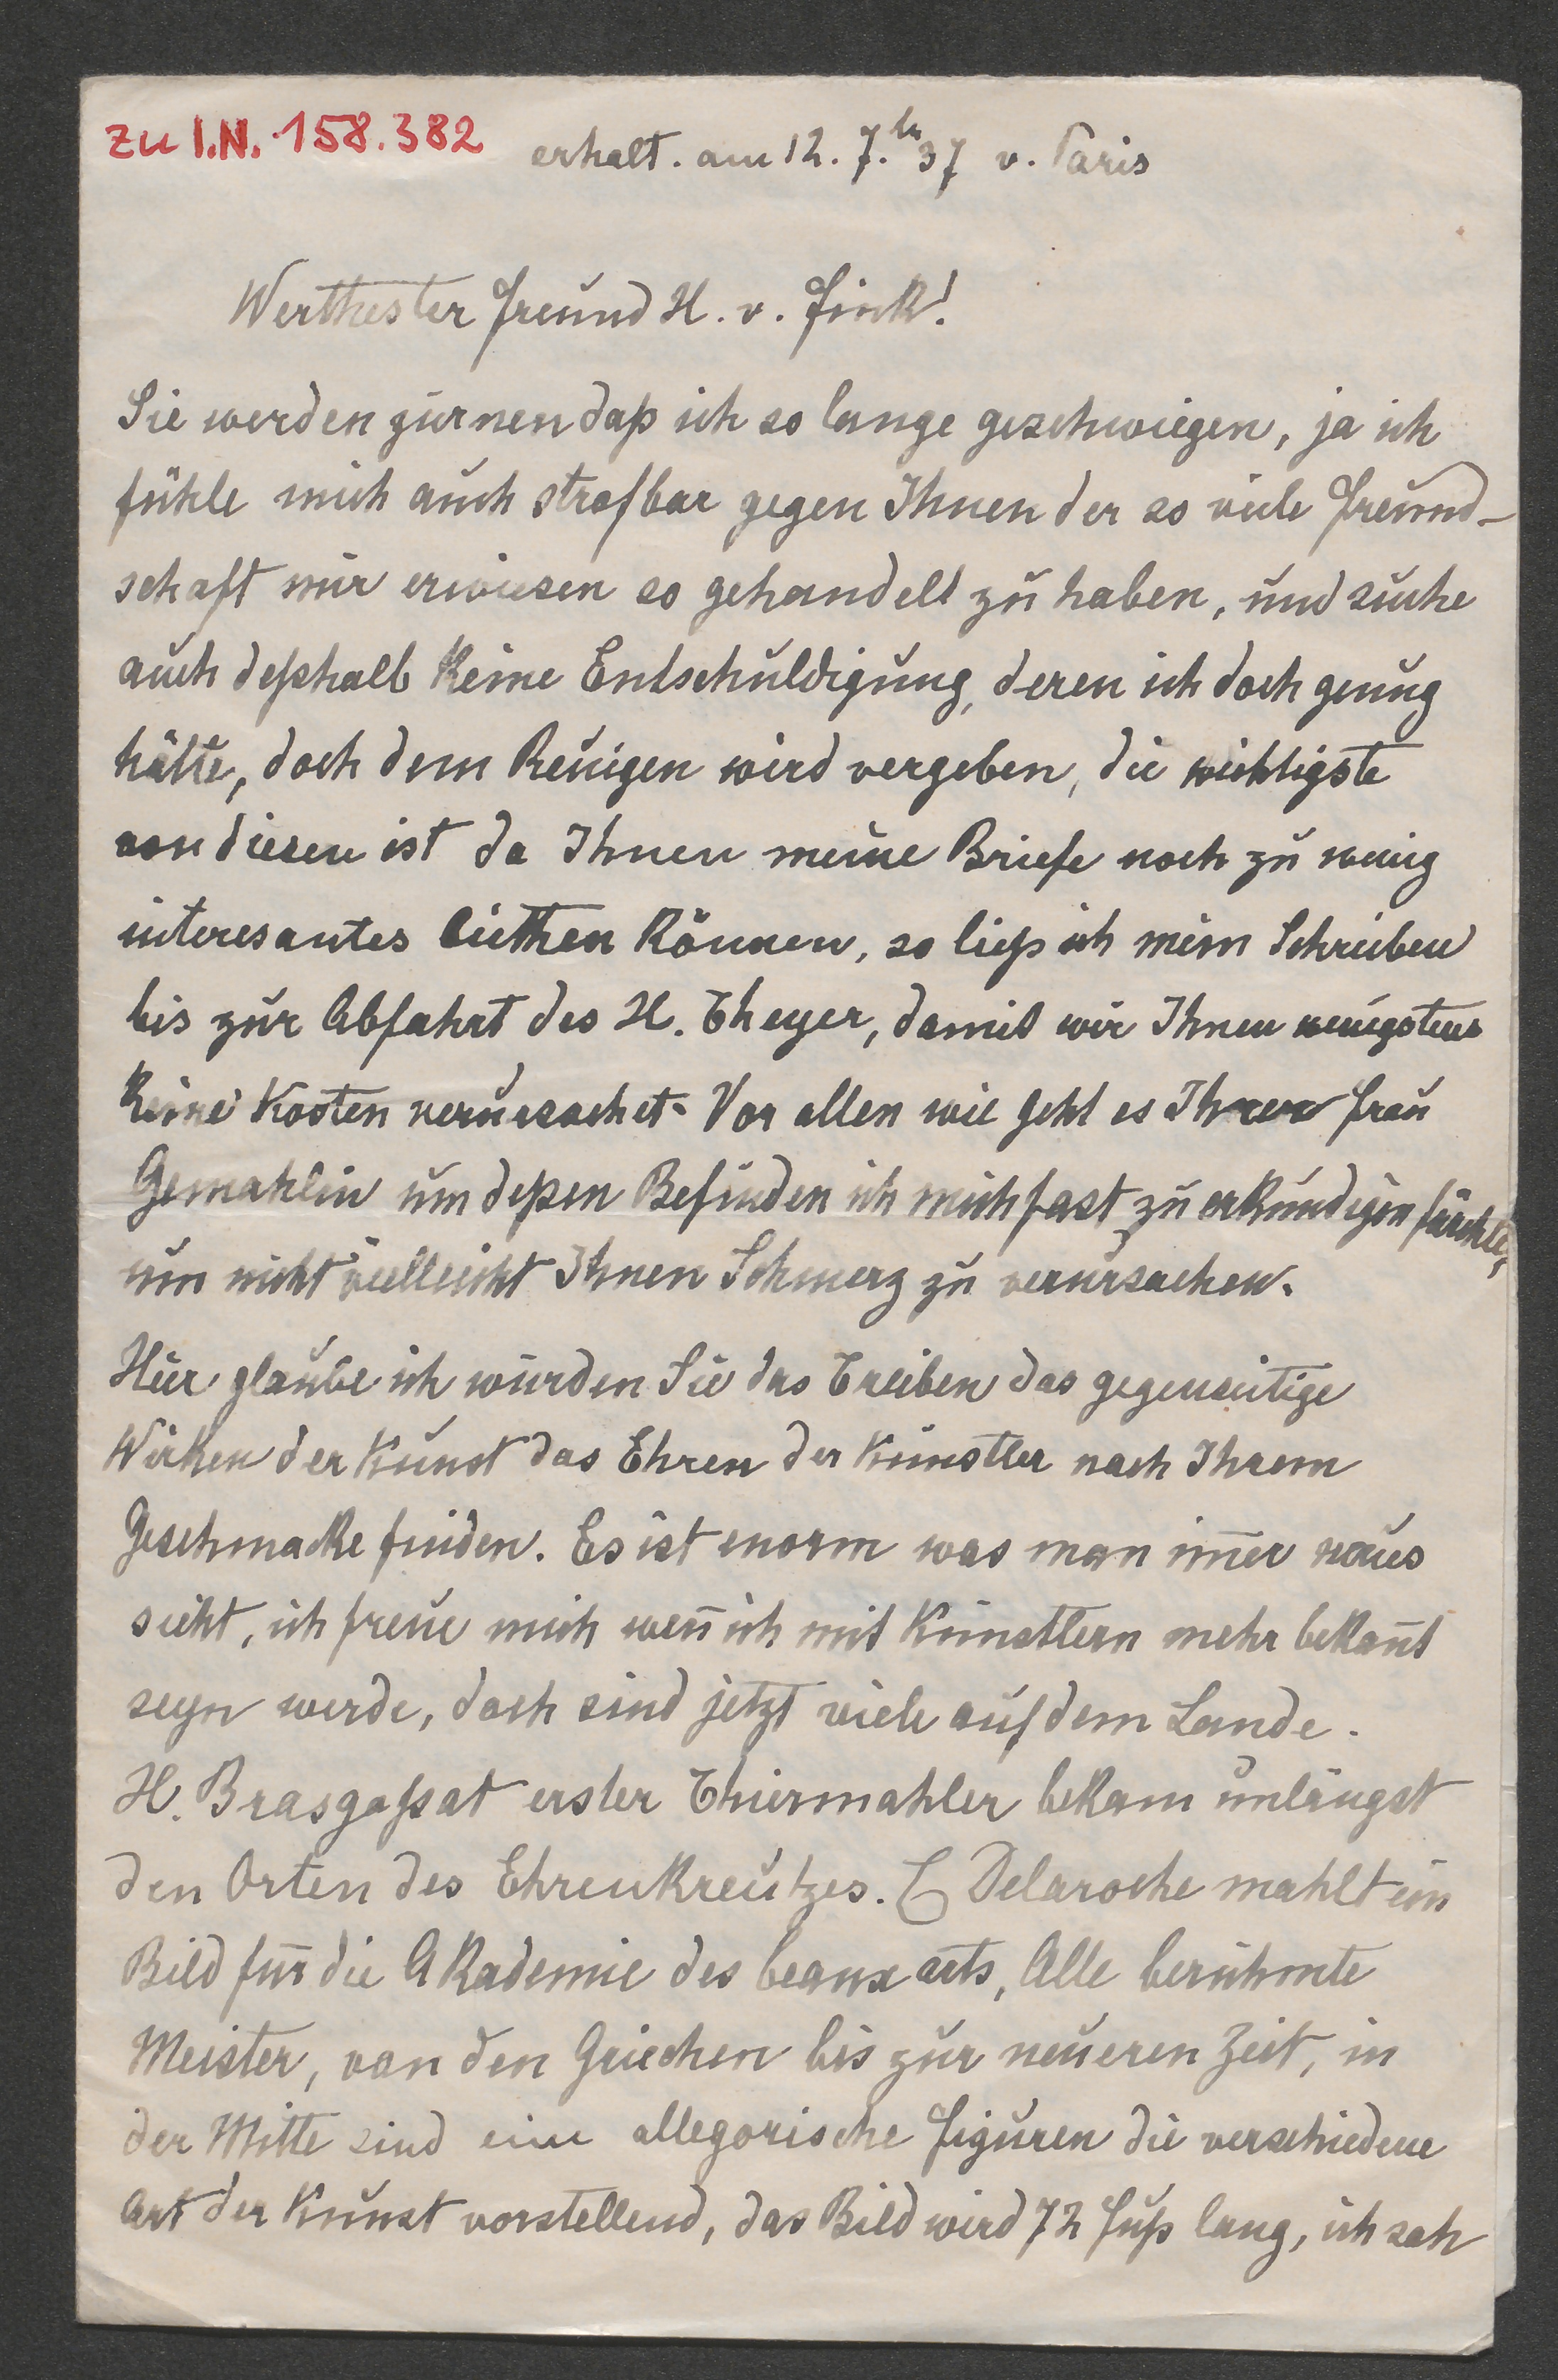 zu I.N. 158.382
erhalt. am 12. 7.br 37 v. Paris
Werthester Freund H. v. Fink!
Sie werden zürnen daß ich so lange geschwiegen, ja ich
fühle mich auch strafbar gegen Ihnen der so viele Freund-
schaft mir erwiesen so gehandelt zu haben, und suche
auch deßhalb keine Entschuldigung, deren ich doch genug
hätte, doch dem Reuigen wird vergeben, die wichtigste
von diesen ist da Ihnen meine Briefe noch zu wenig
interesantes biethen können, so ließ ich mein Schreiben
bis zur Abfahrt des H. Theyer, damit wir Ihnen wenigstens
keine Kosten verursachet. Vor allen wie geht es Ihrer Frau
Gemahlin um deßen Befinden ich mich fast zu erkundigen fürchte,
um nicht vielleicht Ihnen Schmerz zu verursachen.
Hier glaube ich würden Sie das Treiben das gegenseitige
Wirken der Kunst das Ehren der Künstler nach Ihrem
Geschmacke finden. Es ist enorm was man im̄er neues
sieht, ich freue mich wen̄ ich mit Künstlern mehr bekan̄t
seyn werde, doch sind jetzt viele auf dem Lande.
H. Brasgaßat erster Thiermahler bekam unlängst
den Orten des Ehrenkreutzes. Delaroche mahlt ein
Bild für die Akademie des beaux arts, Alle berühmte
Meister, von den Griechen bis zur neueren Zeit, in
der Mitte sind eine allegorische Figuren die verschiedene
Art der Kunst vorstellend, das Bild wird 72 Fuß lang, ich sah